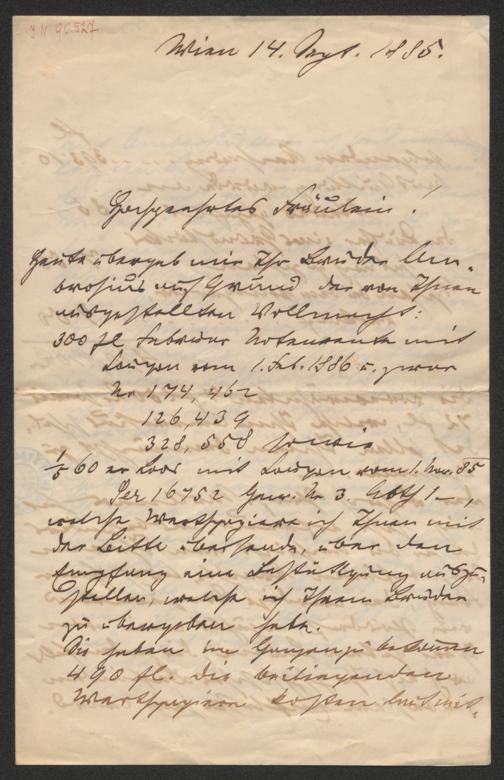 I.N 96.527
Wien 14. Sept. 1885.
Hochgeehrtes Fräulein!
Heute übergab mir Ihr Bruder Am-
brosius auf Grund der von Ihnen
ausgestellten Vollmacht:
300 fl Februar Notenrente mit
Coupon vom 1. Feb. 1886 u. zwar
Nr 174,462
126,439
328,558 sowie
1/5 60 er Loos mit Coupon vom 1. Nov. 85
Ser 16752 Gew. Nr 3.
welche Werthpapiere ich Ihnen mit
der Bitte übersende, über den
Empfang eine Bestätigung auszu-
stellen, welche ich Ihrem Bruder
zu übergeben habe.
Sie haben im Ganzen zu bekommen
490 fl. die beiliegenden
Werthpapiere kosten laut mit-